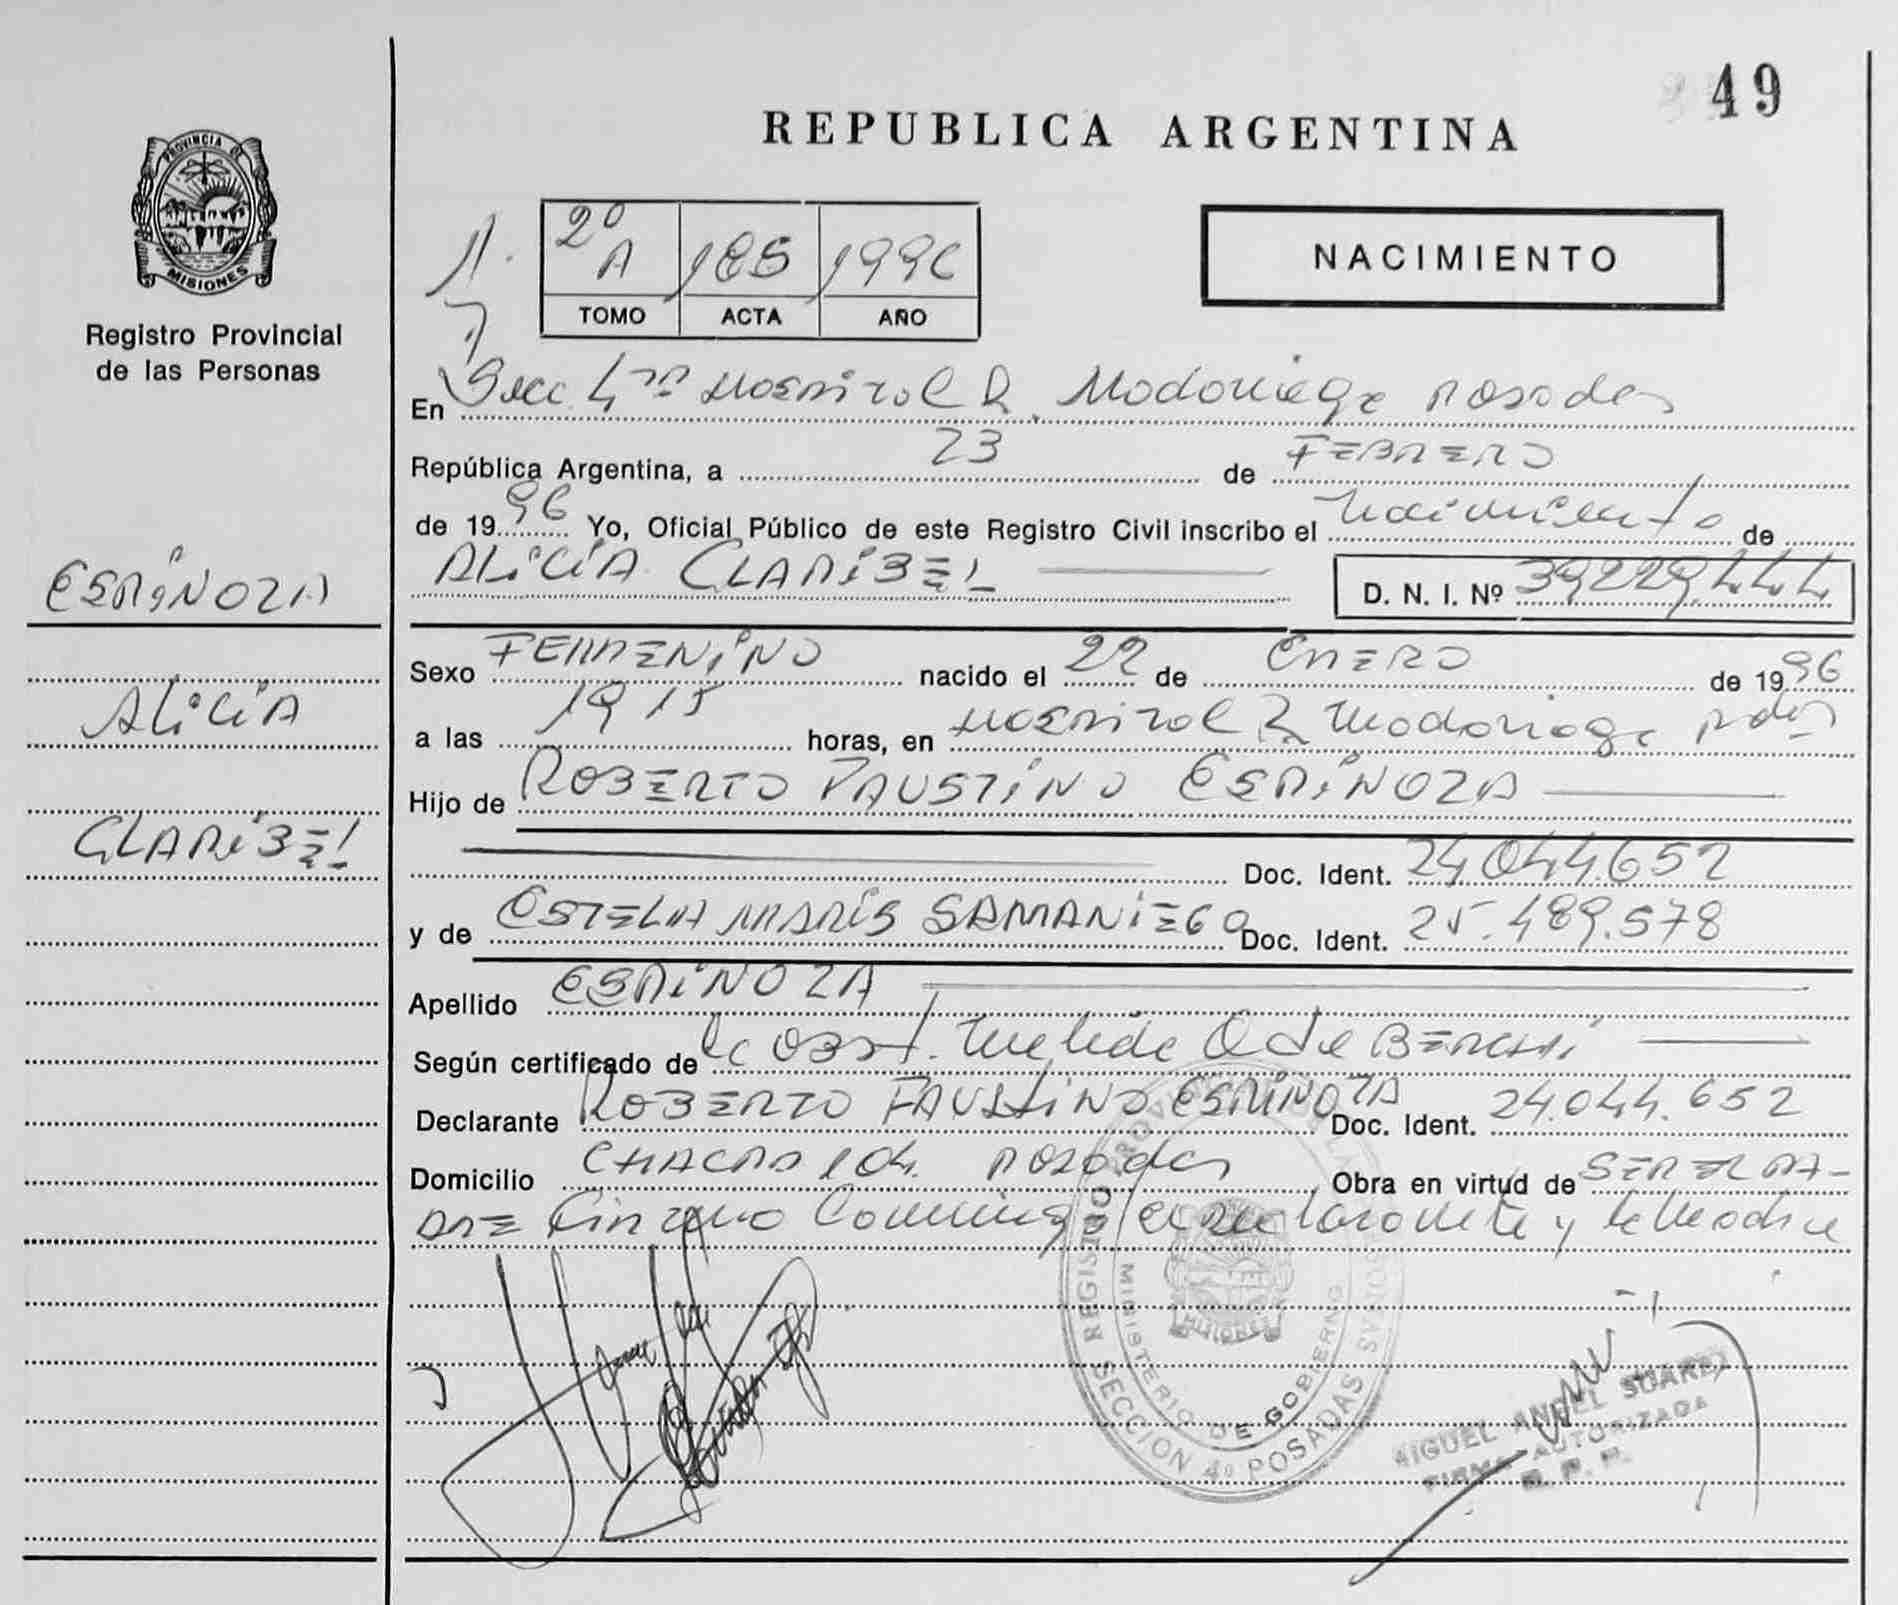 49
REPUBLICA ARGENTINA
PROVINCIA DE
MISIONES
Registro Provincial
de las Personas
2º A 185 1996
TOMO ACTA AÑO
NACIMIENTO
En Secc. 4ta Hospital R. Madariaga Posadas
República Argentina, a 23 de FEBRERO
de 1996 Yo, Oficial Público de este Registro Civil inscribo el nacimiento de
ESPINOZA
ALICIA CLARIBEL D. N. I. Nº 39229.444
Sexo FEMENINO nacido el 22 de ENERO de 1996
ALICIA
a las 19 15 horas, en Hospital R Madariaga Pdas
Hijo de ROBERTO FAUSTINO ESPINOZA
CLARIBEL
Doc. Ident. 24.044.652
y de ESTELA MARIS SAMANIEGO Doc. Ident. 25.489.578
Apellido ESPINOZA
Según certificado de Obst.
Declarante ROBERTO FAUSTINO ESPINOZA Doc. Ident. 24.044.652
Domicilio CHACRA 104. Posadas Obra en virtud de SER EL PA-
DRE el declarante y la madre
REGISTRO PROVINCIAL
MINISTERIO DE GOBIERNO
MISIONES
SECCION 4º POSADAS
MIGUEL ANGEL SUAREZ
FIRMA AUTORIZADA
R. P. P.